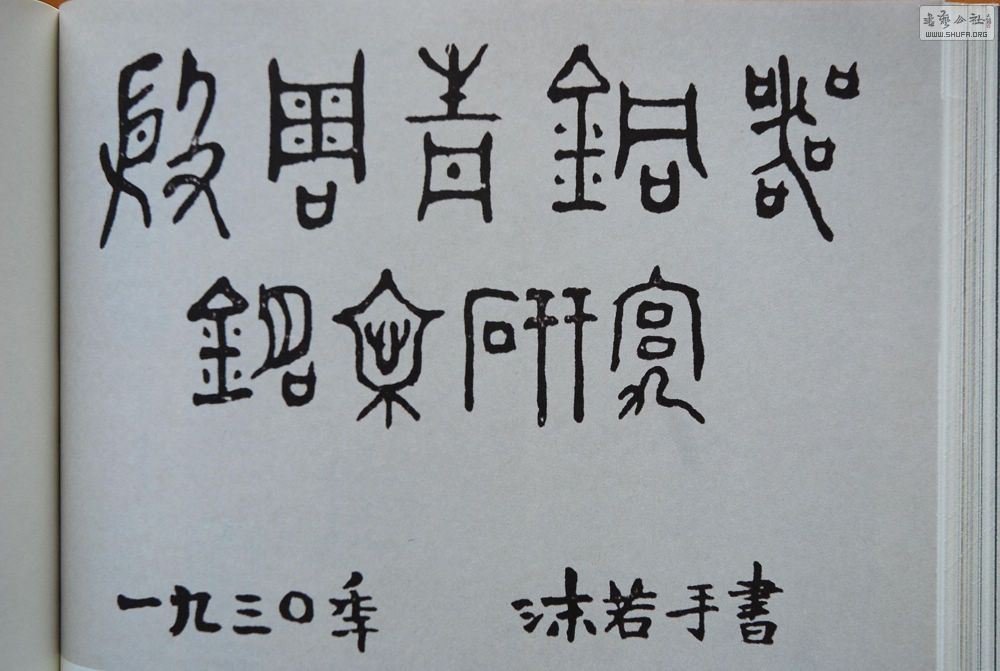 書藝公社
WWW.SHUFA.ORG
殷周青銅器
銘文研究
一九三〇年 沫若手書